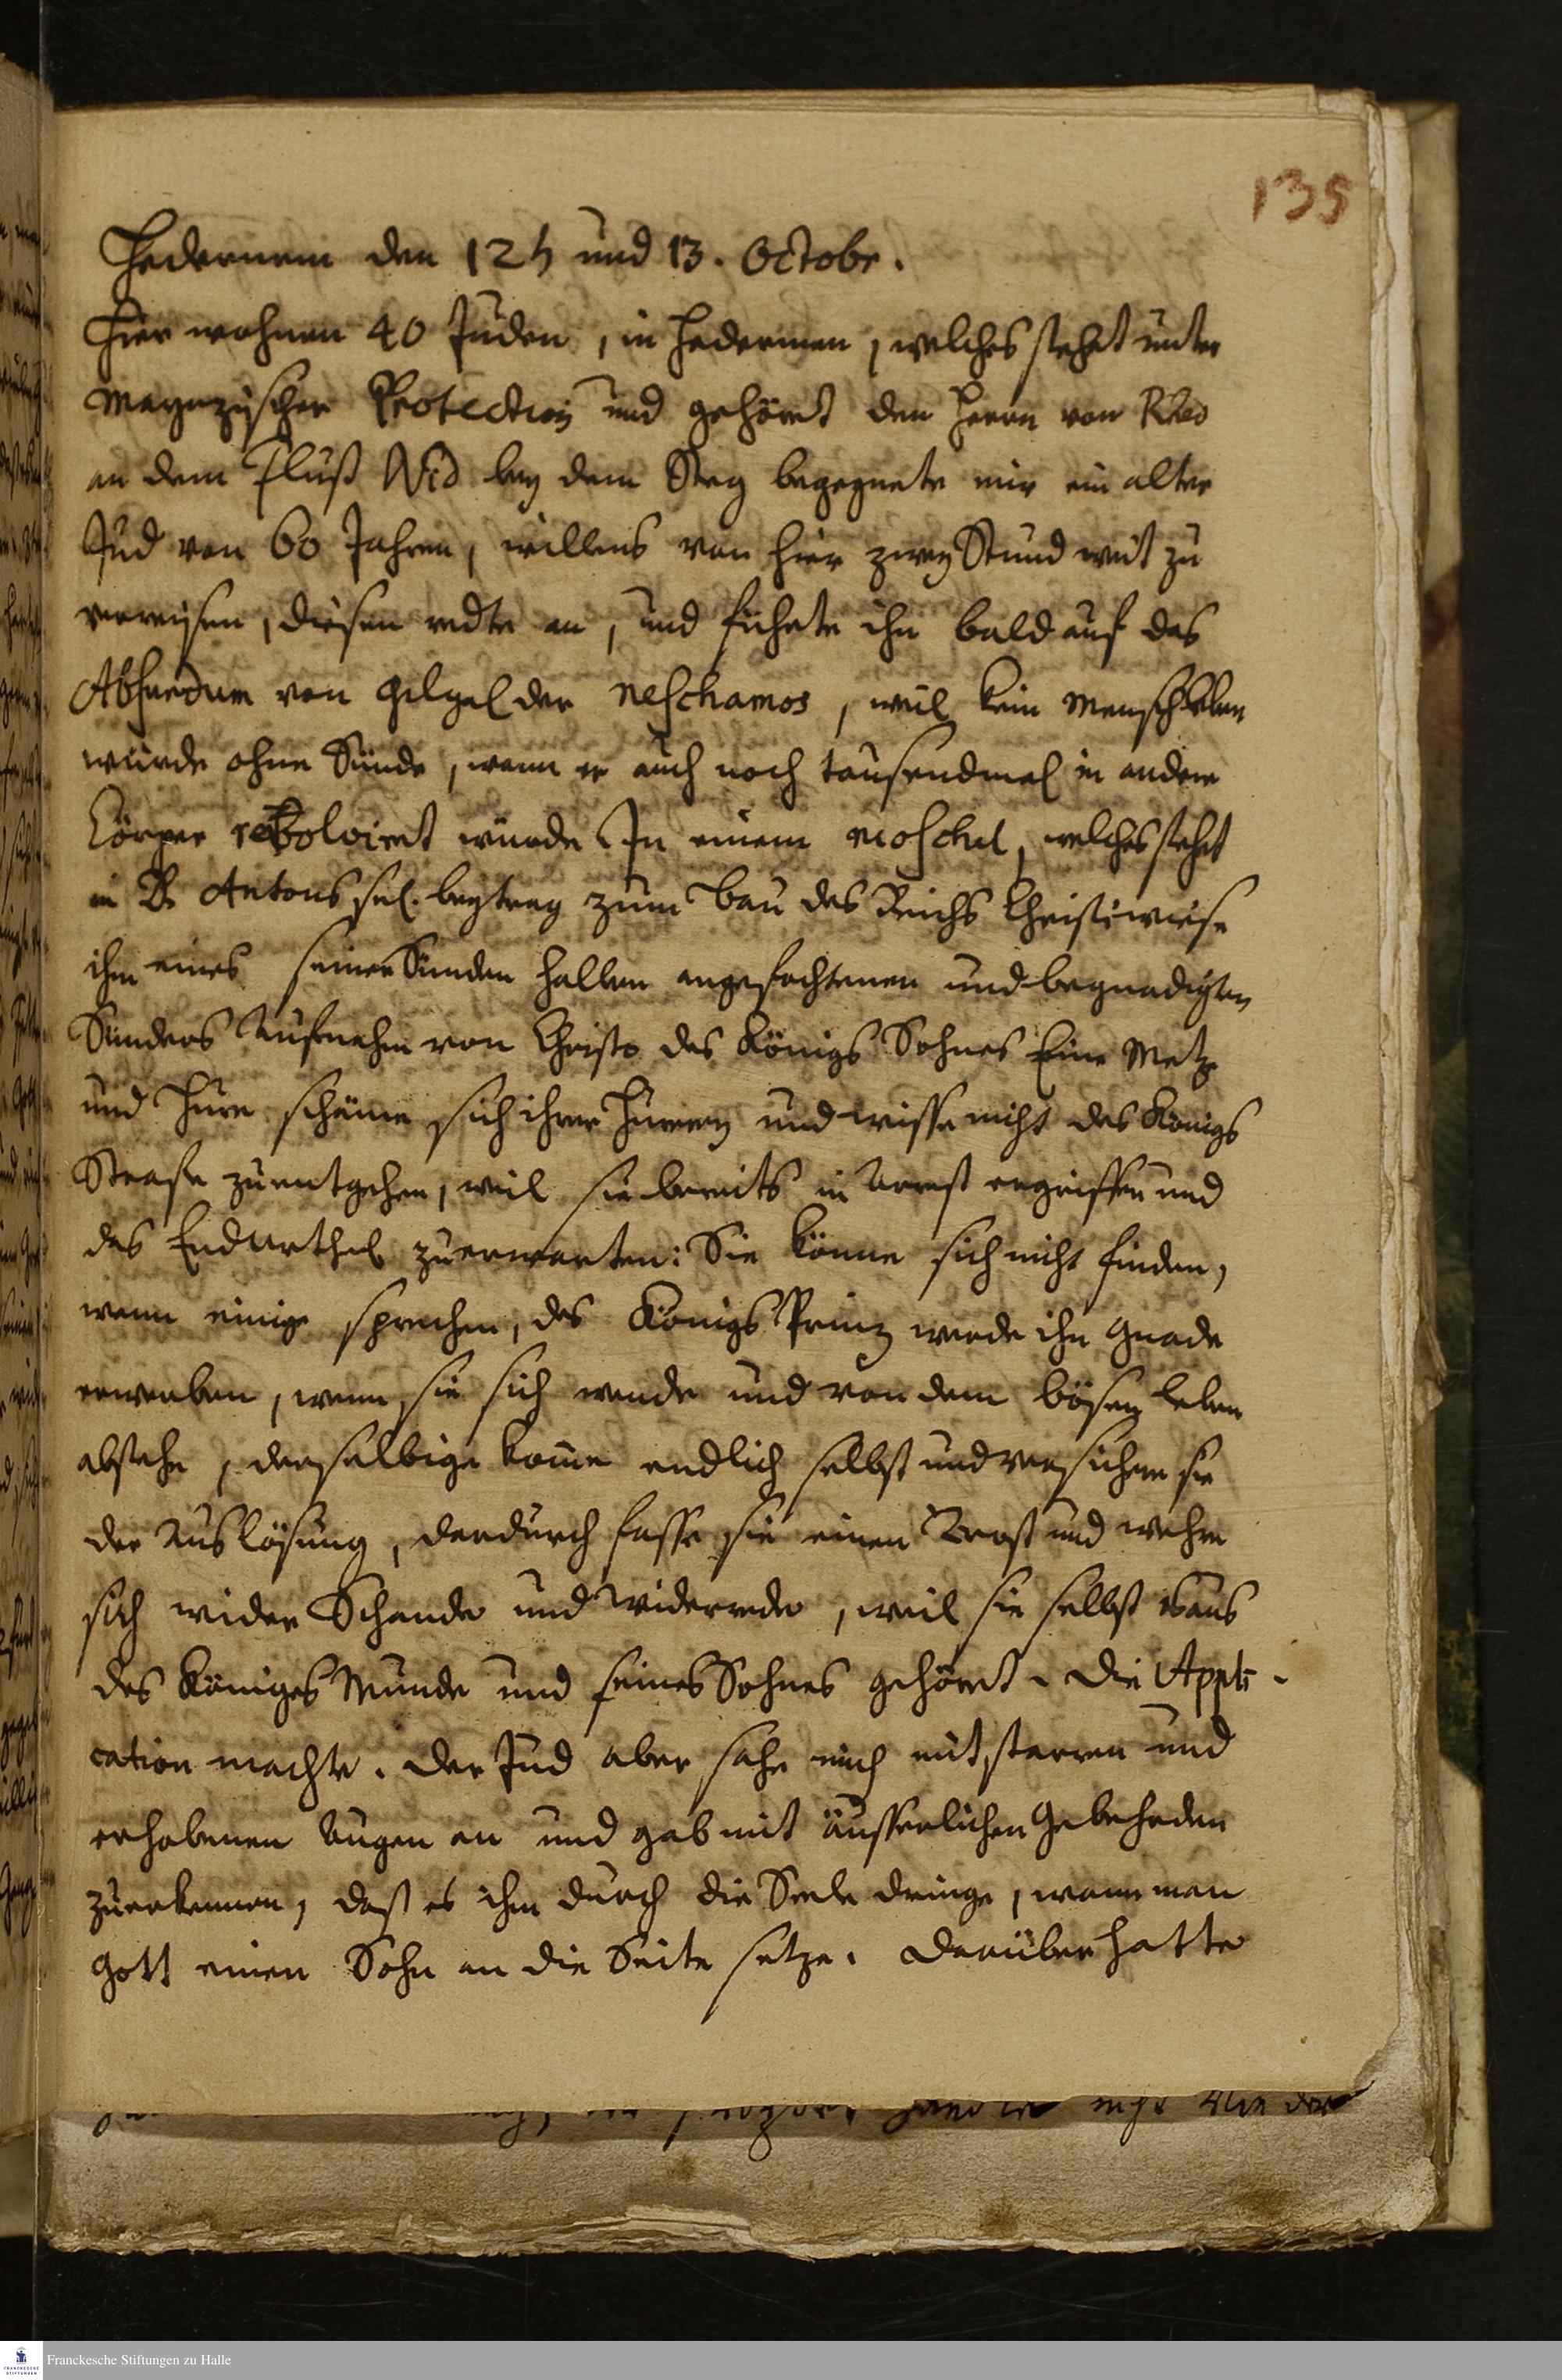 135
Hedernem den 12 h und 13. Octobr.
Hier wohnen 40 Juden, in Hedernem, welches stehet unter
Maynzischer Protection und gehöret den Herrn von Rhed
an dem Fluß Nid bey dem Steg begegnete mir ein alter
Jud von 60 Jahren, willens von hier zwey Stund weit zu
verreisen, diesen redte an, und führte ihn bald auf das
Absurdum von Gilgul der Neschamos, weil kein Mensch leben
würde ohne Sünde, wann er auch noch tausendmal in andere
Cörper revolviret würde. In einem Moschel, welches stehet
in B. Antons sel. beytrag zum Bau des Reichs Christi wiese
ihm eines seiner Sünden halben angefochtenen und begnadigten
Sünders Aufnahm von Christo des Königs Sohnes Eine Metz
und Hure schäme sich ihrer Hurerey und wisse nicht des Königs
Strafe zuentgehen, weil sie bereits in Arrest ergriffen und
des Endurthel zuerwarten: Sie könne sich nicht finden,
wenn einige sprechen, des Königs Prinz werde ihr Gnade
erwerben, wenn sie sich wende und von dem bösen leben
abstehe, derselbige komme endlich selbst und versichere sie
der Auslösung, dardurch fasse sie einen Trost und wehre
sich wider Schande und widerrede, weil sie selbst es aus
des Königes Munde und seines Sohnes gehöret. Die Appli-
cation machte. Der Jud aber sahe mich mit starren und
erhobenen Augen an und gab mit äusserlichen Geberden
zuerkennen, daß es ihm durch die Seele dringe, wann man
Gott einen Sohn an die Seite setze. Darüber hatte
Franckesche Stiftungen zu Halle